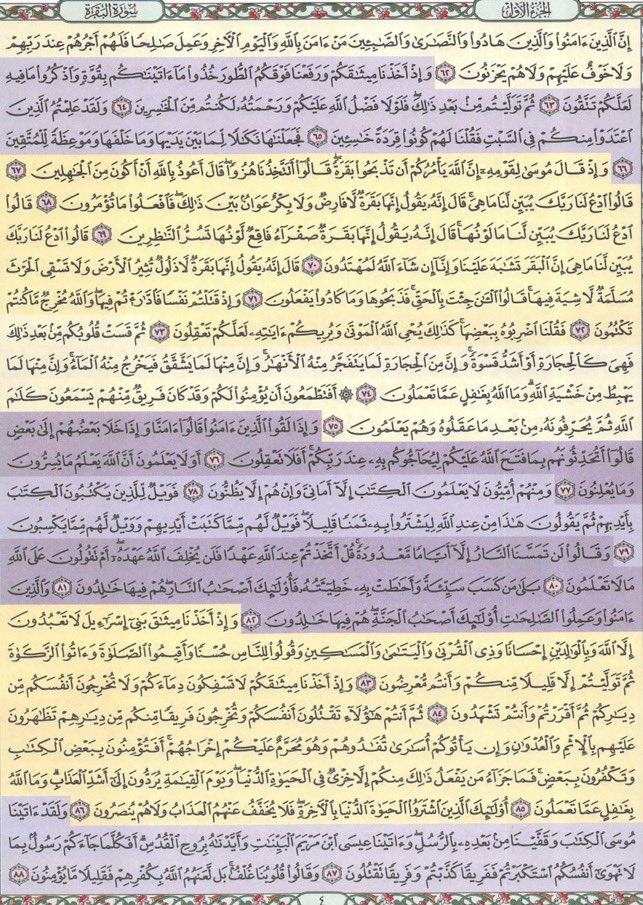 الجزء الأول
سورة البقرة
إِنَّ الَّذِينَ ءَامَنُوا وَالَّذِينَ هَادُوا وَالنَّصَارَى وَالصَّابِئِينَ مَنْ ءَامَنَ بِاللَّهِ وَالْيَوْمِ الْآخِرِ وَعَمِلَ صَالِحًا فَلَهُمْ أَجْرُهُمْ عِندَ رَبِّهِمْ
وَلَا خَوْفٌ عَلَيْهِمْ وَلَا هُمْ يَحْزَنُونَ ٦٢ وَإِذْ أَخَذْنَا مِيثَاقَكُمْ وَرَفَعْنَا فَوْقَكُمُ الطُّورَ خُذُوا مَا ءَاتَيْنَاكُم بِقُوَّةٍ وَاذْكُرُوا مَا فِيهِ
لَعَلَّكُمْ تَتَّقُونَ ٦٣ ثُمَّ تَوَلَّيْتُم مِّنْ بَعْدِ ذَٰلِكَ فَلَوْلَا فَضْلُ اللَّهِ عَلَيْكُمْ وَرَحْمَتُهُ لَكُنتُم مِّنَ الْخَاسِرِينَ ٦٤ وَلَقَدْ عَلِمْتُمُ الَّذِينَ
اعْتَدَوْا مِنكُمْ فِي السَّبْتِ فَقُلْنَا لَهُمْ كُونُوا قِرَدَةً خَاسِئِينَ ٦٥ فَجَعَلْنَاهَا نَكَالًا لِّمَا بَيْنَ يَدَيْهَا وَمَا خَلْفَهَا وَمَوْعِظَةً لِّلْمُتَّقِينَ
٦٦ وَإِذْ قَالَ مُوسَى لِقَوْمِهِ إِنَّ اللَّهَ يَأْمُرُكُمْ أَن تَذْبَحُوا بَقَرَةً قَالُوا أَتَتَّخِذُنَا هُزُوًا قَالَ أَعُوذُ بِاللَّهِ أَنْ أَكُونَ مِنَ الْجَاهِلِينَ ٦٧
قَالُوا ادْعُ لَنَا رَبَّكَ يُبَيِّن لَّنَا مَا هِيَ قَالَ إِنَّهُ يَقُولُ إِنَّهَا بَقَرَةٌ لَّا فَارِضٌ وَلَا بِكْرٌ عَوَانٌ بَيْنَ ذَٰلِكَ فَافْعَلُوا مَا تُؤْمَرُونَ ٦٨ قَالُوا
ادْعُ لَنَا رَبَّكَ يُبَيِّن لَّنَا مَا لَوْنُهَا قَالَ إِنَّهُ يَقُولُ إِنَّهَا بَقَرَةٌ صَفْرَاءُ فَاقِعٌ لَّوْنُهَا تَسُرُّ النَّاظِرِينَ ٦٩ قَالُوا ادْعُ لَنَا رَبَّكَ
يُبَيِّن لَّنَا مَا هِيَ إِنَّ الْبَقَرَ تَشَابَهَ عَلَيْنَا وَإِنَّا إِن شَاءَ اللَّهُ لَمُهْتَدُونَ ٧٠ قَالَ إِنَّهُ يَقُولُ إِنَّهَا بَقَرَةٌ لَّا ذَلُولٌ تُثِيرُ الْأَرْضَ وَلَا تَسْقِي الْحَرْثَ
مُسَلَّمَةٌ لَّا شِيَةَ فِيهَا قَالُوا الْآنَ جِئْتَ بِالْحَقِّ فَذَبَحُوهَا وَمَا كَادُوا يَفْعَلُونَ ٧١ وَإِذْ قَتَلْتُمْ نَفْسًا فَادَّارَأْتُمْ فِيهَا وَاللَّهُ مُخْرِجٌ مَّا كُنتُمْ
تَكْتُمُونَ ٧٢ فَقُلْنَا اضْرِبُوهُ بِبَعْضِهَا كَذَٰلِكَ يُحْيِ اللَّهُ الْمَوْتَى وَيُرِيكُمْ ءَايَاتِهِ لَعَلَّكُمْ تَعْقِلُونَ ٧٣ ثُمَّ قَسَتْ قُلُوبُكُم مِّنْ بَعْدِ ذَٰلِكَ
فَهِيَ كَالْحِجَارَةِ أَوْ أَشَدُّ قَسْوَةً وَإِنَّ مِنَ الْحِجَارَةِ لَمَا يَتَفَجَّرُ مِنْهُ الْأَنْهَارُ وَإِنَّ مِنْهَا لَمَا يَشَّقَّقُ فَيَخْرُجُ مِنْهُ الْمَاءُ وَإِنَّ مِنْهَا لَمَا
يَهْبِطُ مِنْ خَشْيَةِ اللَّهِ وَمَا اللَّهُ بِغَافِلٍ عَمَّا تَعْمَلُونَ ٧٤ ۞ أَفَتَطْمَعُونَ أَن يُؤْمِنُوا لَكُمْ وَقَدْ كَانَ فَرِيقٌ مِّنْهُمْ يَسْمَعُونَ كَلَامَ
اللَّهِ ثُمَّ يُحَرِّفُونَهُ مِنْ بَعْدِ مَا عَقَلُوهُ وَهُمْ يَعْلَمُونَ ٧٥ وَإِذَا لَقُوا الَّذِينَ ءَامَنُوا قَالُوا ءَامَنَّا وَإِذَا خَلَا بَعْضُهُمْ إِلَى بَعْضٍ
قَالُوا أَتُحَدِّثُونَهُم بِمَا فَتَحَ اللَّهُ عَلَيْكُمْ لِيُحَاجُّوكُم بِهِ عِندَ رَبِّكُمْ أَفَلَا تَعْقِلُونَ ٧٦ أَوَلَا يَعْلَمُونَ أَنَّ اللَّهَ يَعْلَمُ مَا يُسِرُّونَ
وَمَا يُعْلِنُونَ ٧٧ وَمِنْهُمْ أُمِّيُّونَ لَا يَعْلَمُونَ الْكِتَابَ إِلَّا أَمَانِيَّ وَإِنْ هُمْ إِلَّا يَظُنُّونَ ٧٨ فَوَيْلٌ لِّلَّذِينَ يَكْتُبُونَ الْكِتَابَ
بِأَيْدِيهِمْ ثُمَّ يَقُولُونَ هَٰذَا مِنْ عِندِ اللَّهِ لِيَشْتَرُوا بِهِ ثَمَنًا قَلِيلًا فَوَيْلٌ لَّهُم مِّمَّا كَتَبَتْ أَيْدِيهِمْ وَوَيْلٌ لَّهُم مِّمَّا يَكْسِبُونَ
٧٩ وَقَالُوا لَن تَمَسَّنَا النَّارُ إِلَّا أَيَّامًا مَّعْدُودَةً قُلْ أَتَّخَذْتُمْ عِندَ اللَّهِ عَهْدًا فَلَن يُخْلِفَ اللَّهُ عَهْدَهُ أَمْ تَقُولُونَ عَلَى اللَّهِ
مَا لَا تَعْلَمُونَ ٨٠ بَلَى مَن كَسَبَ سَيِّئَةً وَأَحَاطَتْ بِهِ خَطِيئَتُهُ فَأُولَٰئِكَ أَصْحَابُ النَّارِ هُمْ فِيهَا خَالِدُونَ ٨١ وَالَّذِينَ
ءَامَنُوا وَعَمِلُوا الصَّالِحَاتِ أُولَٰئِكَ أَصْحَابُ الْجَنَّةِ هُمْ فِيهَا خَالِدُونَ ٨٢ وَإِذْ أَخَذْنَا مِيثَاقَ بَنِي إِسْرَاءِيلَ لَا تَعْبُدُونَ
إِلَّا اللَّهَ وَبِالْوَالِدَيْنِ إِحْسَانًا وَذِي الْقُرْبَى وَالْيَتَامَى وَالْمَسَاكِينِ وَقُولُوا لِلنَّاسِ حُسْنًا وَأَقِيمُوا الصَّلَاةَ وَءَاتُوا الزَّكَاةَ
ثُمَّ تَوَلَّيْتُمْ إِلَّا قَلِيلًا مِّنكُمْ وَأَنتُم مُّعْرِضُونَ ٨٣ وَإِذْ أَخَذْنَا مِيثَاقَكُمْ لَا تَسْفِكُونَ دِمَاءَكُمْ وَلَا تُخْرِجُونَ أَنفُسَكُم مِّن
دِيَارِكُمْ ثُمَّ أَقْرَرْتُمْ وَأَنتُمْ تَشْهَدُونَ ٨٤ ثُمَّ أَنتُمْ هَٰؤُلَاءِ تَقْتُلُونَ أَنفُسَكُمْ وَتُخْرِجُونَ فَرِيقًا مِّنكُم مِّن دِيَارِهِمْ تَظَاهَرُونَ
عَلَيْهِم بِالْإِثْمِ وَالْعُدْوَانِ وَإِن يَأْتُوكُمْ أُسَارَى تُفَادُوهُمْ وَهُوَ مُحَرَّمٌ عَلَيْكُمْ إِخْرَاجُهُمْ أَفَتُؤْمِنُونَ بِبَعْضِ الْكِتَابِ
وَتَكْفُرُونَ بِبَعْضٍ فَمَا جَزَاءُ مَن يَفْعَلُ ذَٰلِكَ مِنكُمْ إِلَّا خِزْيٌ فِي الْحَيَاةِ الدُّنْيَا وَيَوْمَ الْقِيَامَةِ يُرَدُّونَ إِلَى أَشَدِّ الْعَذَابِ وَمَا اللَّهُ
بِغَافِلٍ عَمَّا تَعْمَلُونَ ٨٥ أُولَٰئِكَ الَّذِينَ اشْتَرَوُا الْحَيَاةَ الدُّنْيَا بِالْآخِرَةِ فَلَا يُخَفَّفُ عَنْهُمُ الْعَذَابُ وَلَا هُمْ يُنصَرُونَ ٨٦ وَلَقَدْ ءَاتَيْنَا
مُوسَى الْكِتَابَ وَقَفَّيْنَا مِنْ بَعْدِهِ بِالرُّسُلِ وَءَاتَيْنَا عِيسَى ابْنَ مَرْيَمَ الْبَيِّنَاتِ وَأَيَّدْنَاهُ بِرُوحِ الْقُدُسِ أَفَكُلَّمَا جَاءَكُمْ رَسُولٌ بِمَا
لَا تَهْوَى أَنفُسُكُمُ اسْتَكْبَرْتُمْ فَفَرِيقًا كَذَّبْتُمْ وَفَرِيقًا تَقْتُلُونَ ٨٧ وَقَالُوا قُلُوبُنَا غُلْفٌ بَل لَّعَنَهُمُ اللَّهُ بِكُفْرِهِمْ فَقَلِيلًا مَّا يُؤْمِنُونَ ٨٨
٤